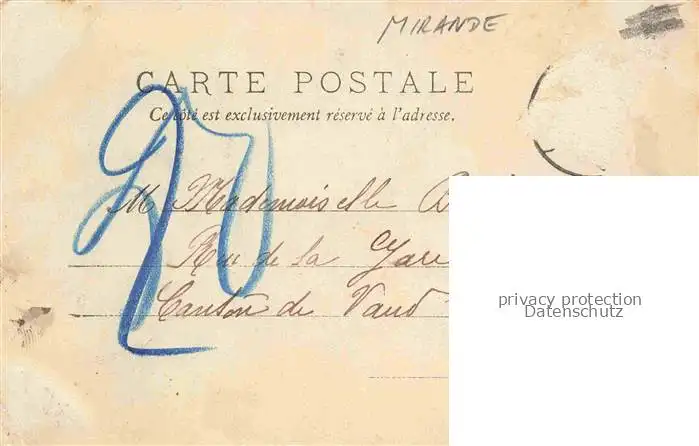 MIRANDE
CARTE POSTALE
Ce côté est exclusivement réservé à l'adresse.
M Mademoiselle
Rue de la Gare
Canton de Vaud
privacy protection
Datenschutz